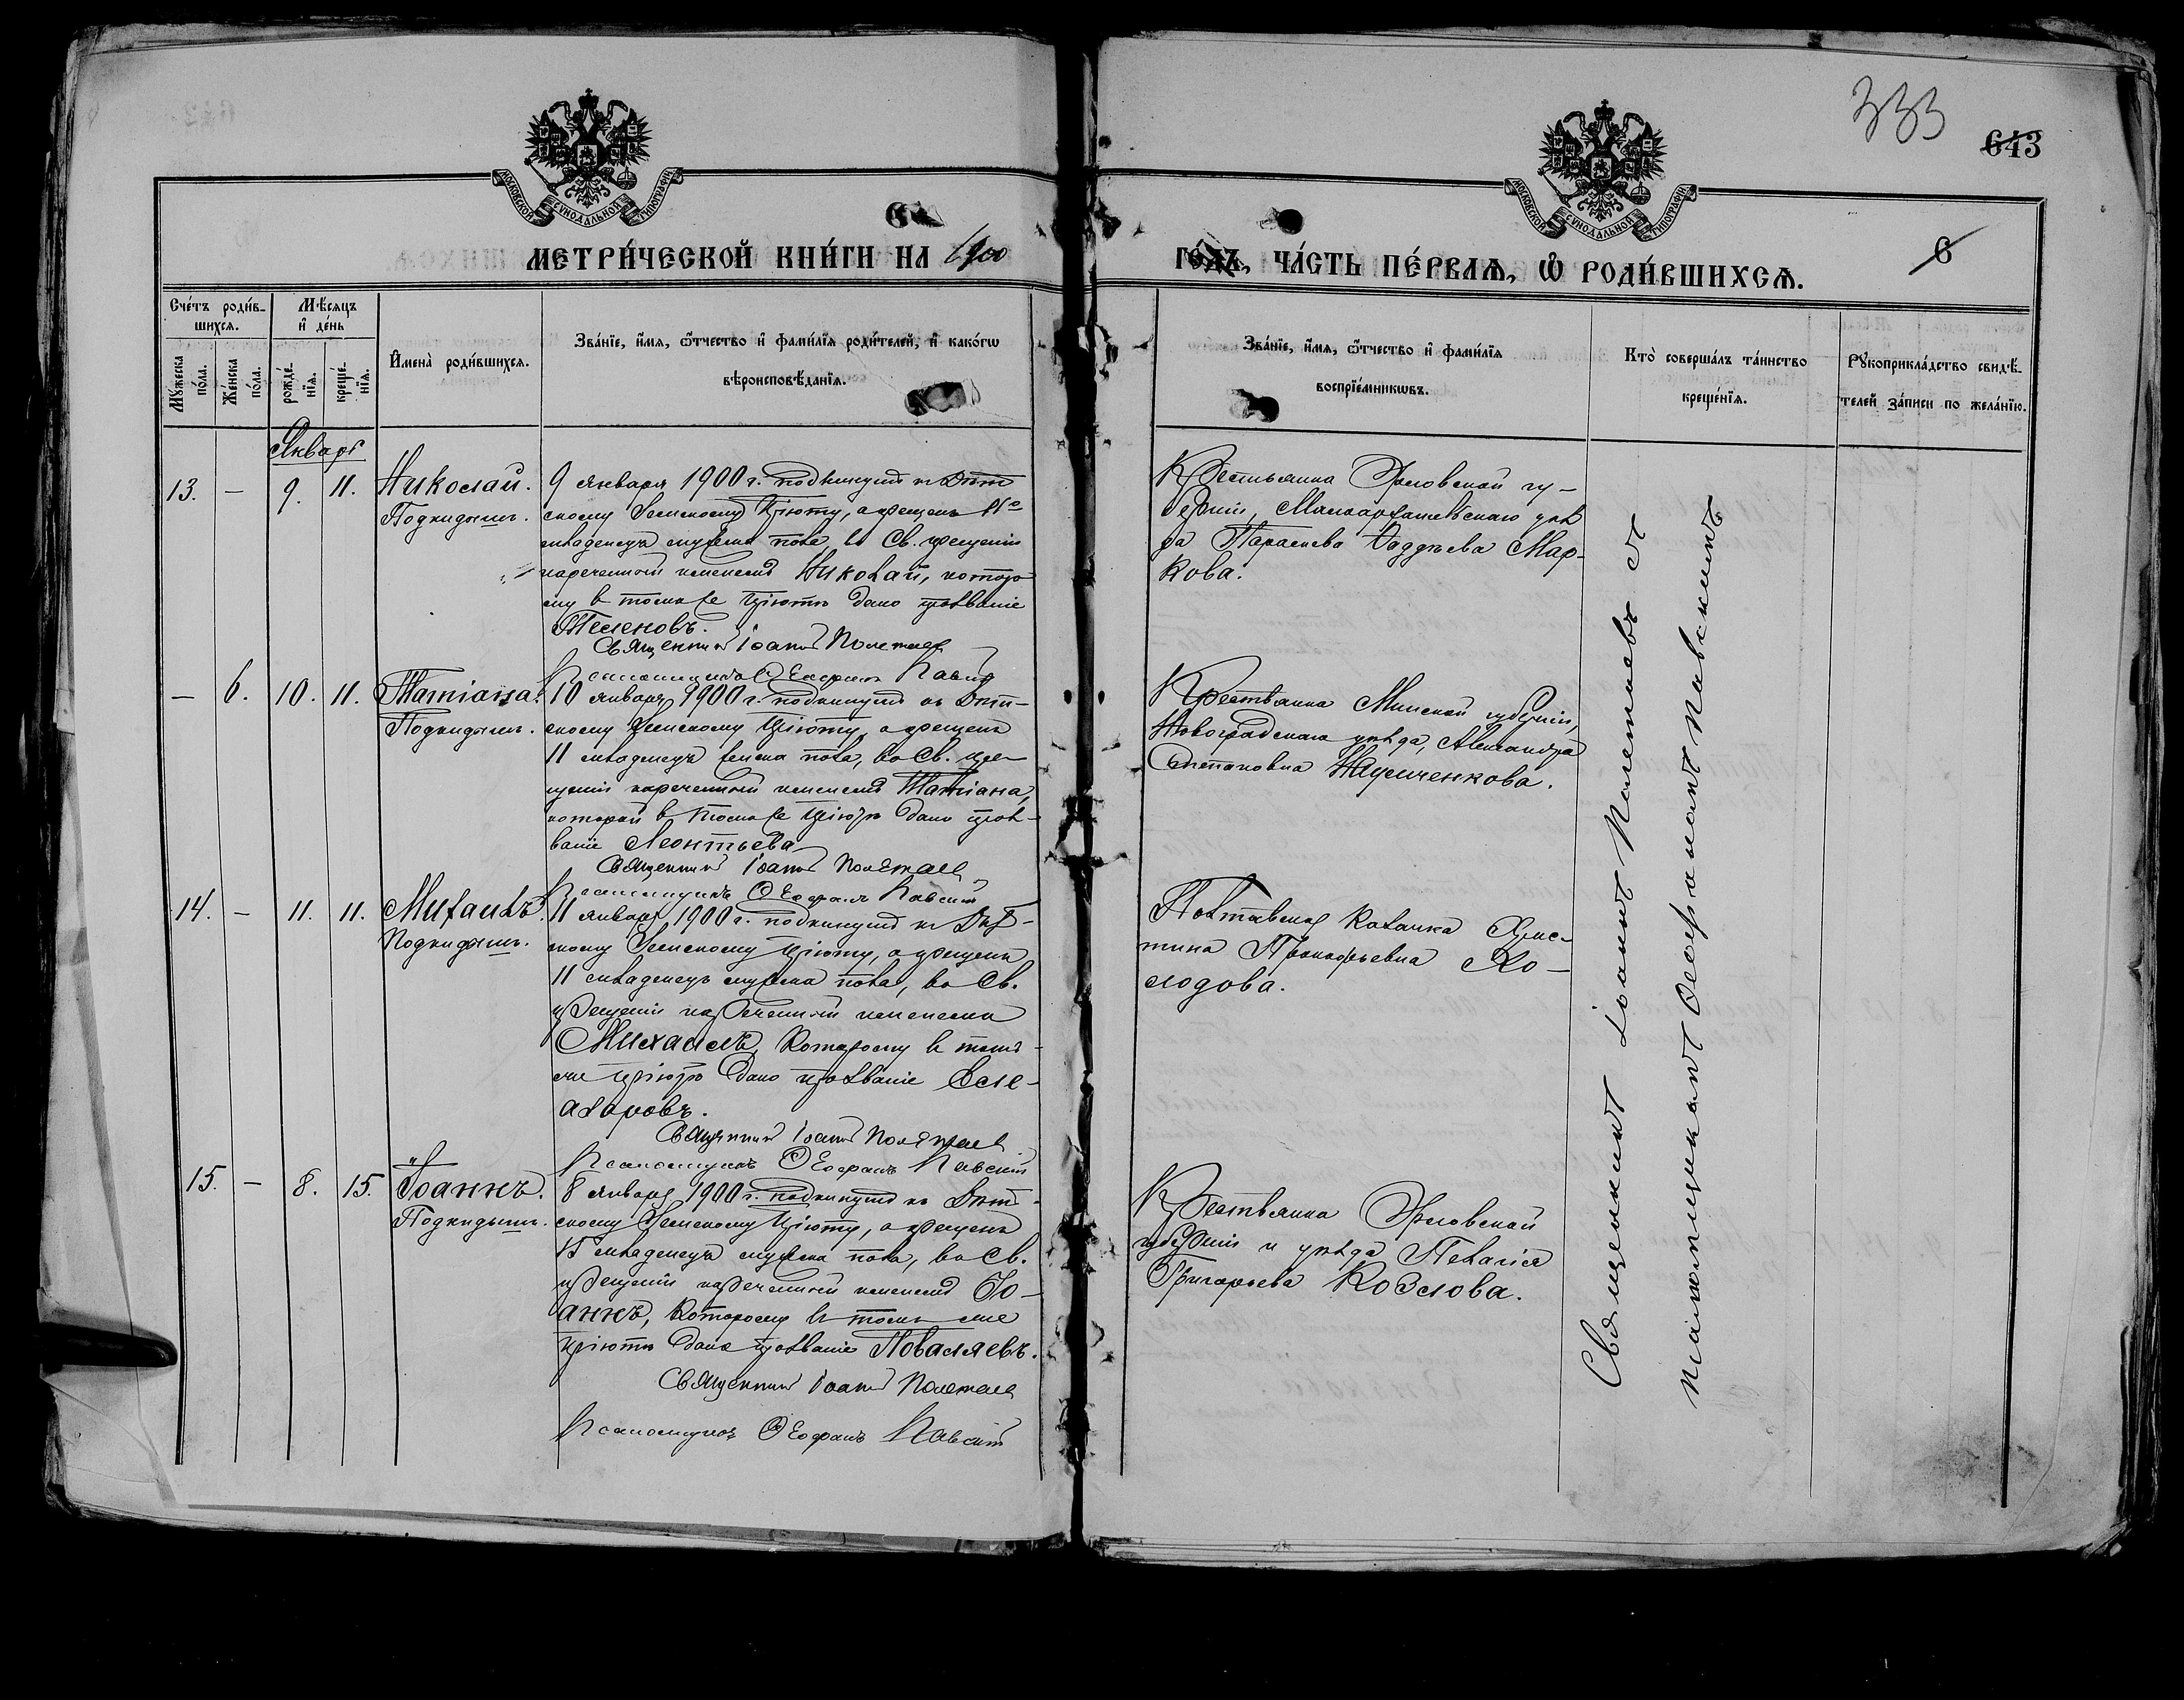 333
643
МОСКОВСКОЙ СѴНОДАЛЬНОЙ ТИПОГРАФІИ
МОСКОВСКОЙ СѴНОДАЛЬНОЙ ТИПОГРАФІИ
МЕТРИ́ЧЕСКОЙ КНИ́ГИ НА 1900
ГО́ДЪ, ЧА́СТЬ ПЕ́РВАѦ, Ѡ҆ РОДИ́ВШИХСѦ.
6
Сче́тъ роди́в-
шихся.
Мѣ́сяцъ
и҆ де́нь
Му́жеска
по́ла.
Же́нска
по́ла.
рожде́-
нїя.
креще́-
нїя.
И҆мена̀ роди́вшихся.
Зва́нїе, и҆́мя, ѻ҆́тчество и҆ фами́лїя роди́телей, и҆ како́гѡ
вѣроисповѣ́данїя.
Зва́нїе, и҆́мя, ѻ҆́тчество и҆ фами́лїя
воспрїе́мникѡвъ.
Кто̀ соверша́лъ та́инство
креще́нїя.
Рꙋкоприкла́дство свидѣ́-
телей за́писи по жела́нїю.
Январь
13. — 9. 11. Николай.
Подкидышъ.
9 января 1900 г. подкинутъ къ Дѣт
скому Земскому Пріюту, а крещенъ 11го
младенецъ мужска пола, въ Св. крещеніи
нареченный именемъ Николай, которо
му въ томъ же пріютѣ дано прозваніе
Теленовъ.
Священникъ Іоаннъ Полетаев
Псаломщикъ Ѳеофанъ Павскій
Крестьянка Орловской гу-
берніи, Малоархангельскаго уѣз
да Параскева Фаддѣева Мар-
кова.
— 6. 10. 11. Татіана.
Подкидышъ.
10 января 1900 г. подкинутъ къ Дѣт-
скому Земскому Пріюту, а крещенъ
11 младенецъ женска пола, во Св. кре-
щеніи нареченный именемъ Татіана,
которой въ томъ же пріютѣ дано проз-
ваніе Леонтьева
Священникъ Іоаннъ Полетаев
Псаломщикъ Ѳеофанъ Павскій
Крестьянка Минской губерніи,
Новоградскаго уѣзда, Александра
Степановна
14. — 11. 11. Михаилъ.
Подкидышъ.
11 января 1900 г. подкинутъ къ Дѣт-
скому Земскому Пріюту, а крещенъ
11 младенецъ мужска пола, во Св.
крещеніи нареченный именемъ
Михаилъ, которому въ томъ-
же пріютѣ дано прозваніе Еле-
азаровъ.
Священникъ Іоаннъ Полетаев
Псаломщикъ Ѳеофанъ Павскій
Полтавская казачка Хрис-
тина Прокофьевна Хо-
лодова.
15. — 8. 15. Іоаннъ.
Подкидышъ.
8 января 1900 г. подкинутъ къ Дѣт-
скому Земскому Пріюту, а крещенъ
15 младенецъ мужска пола, во Св.
крещеніи нареченный именемъ Іо-
аннъ, которому въ томъ же
пріютѣ дано прозваніе Поваляевъ.
Священникъ Іоаннъ Полетаев
Псаломщикъ Ѳеофанъ Павскій
Крестьянка Орловской
губерніи и уѣзда Пелагія
Григорьева Козлова.
Священникъ Іоаннъ Полетаевъ съ
псаломщикомъ Ѳеофаномъ Павскимъ